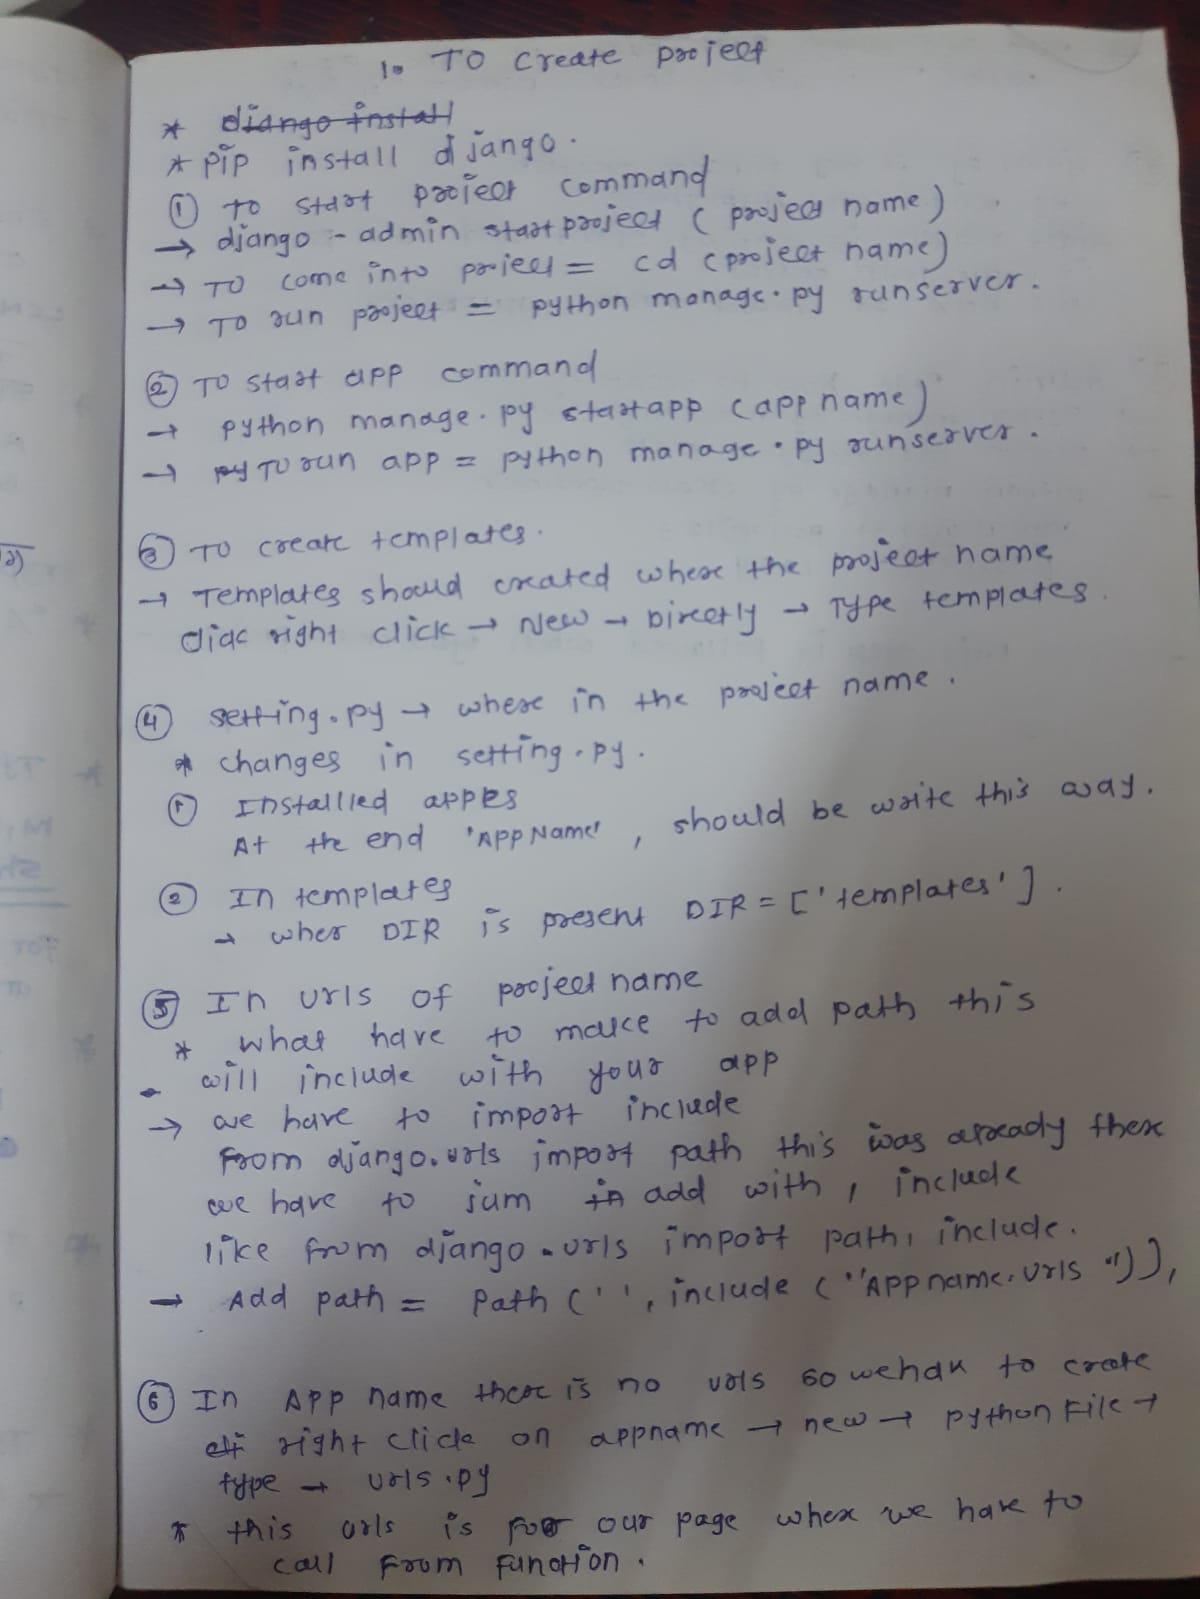 1. TO Create project
* django install
* pip install django.
① TO start project command
→ django :- admin startproject ( project name )
→ TO come into project = cd (project name)
→ TO run project = python manage.py runserver.
② TO start app command
→ python manage.py startapp (app name)
→ py TO run app = python manage.py runserver.
③ TO create templates.
→ Templates should created where the project name
right click → New → Directly → Type templates.
④ setting.py → where in the project name.
* changes in setting.py.
① Installled appes
At the end 'AppName' , should be write this way.
② In templates
→ wher DIR is present DIR = ['templates'].
⑤ In urls of project name
* what have to make to add path this
will include with your app
→ we have to import include
From django.urls import path this was already there
we have to jum in add with , include
like from django.urls import path, include.
→ Add path = Path ('', include ("App name.urls ")),
⑥ In App name there is no urls so we have to create
right click on appname → new → python File →
type → urls.py
* this urls is for our page where we have to
call From Function.